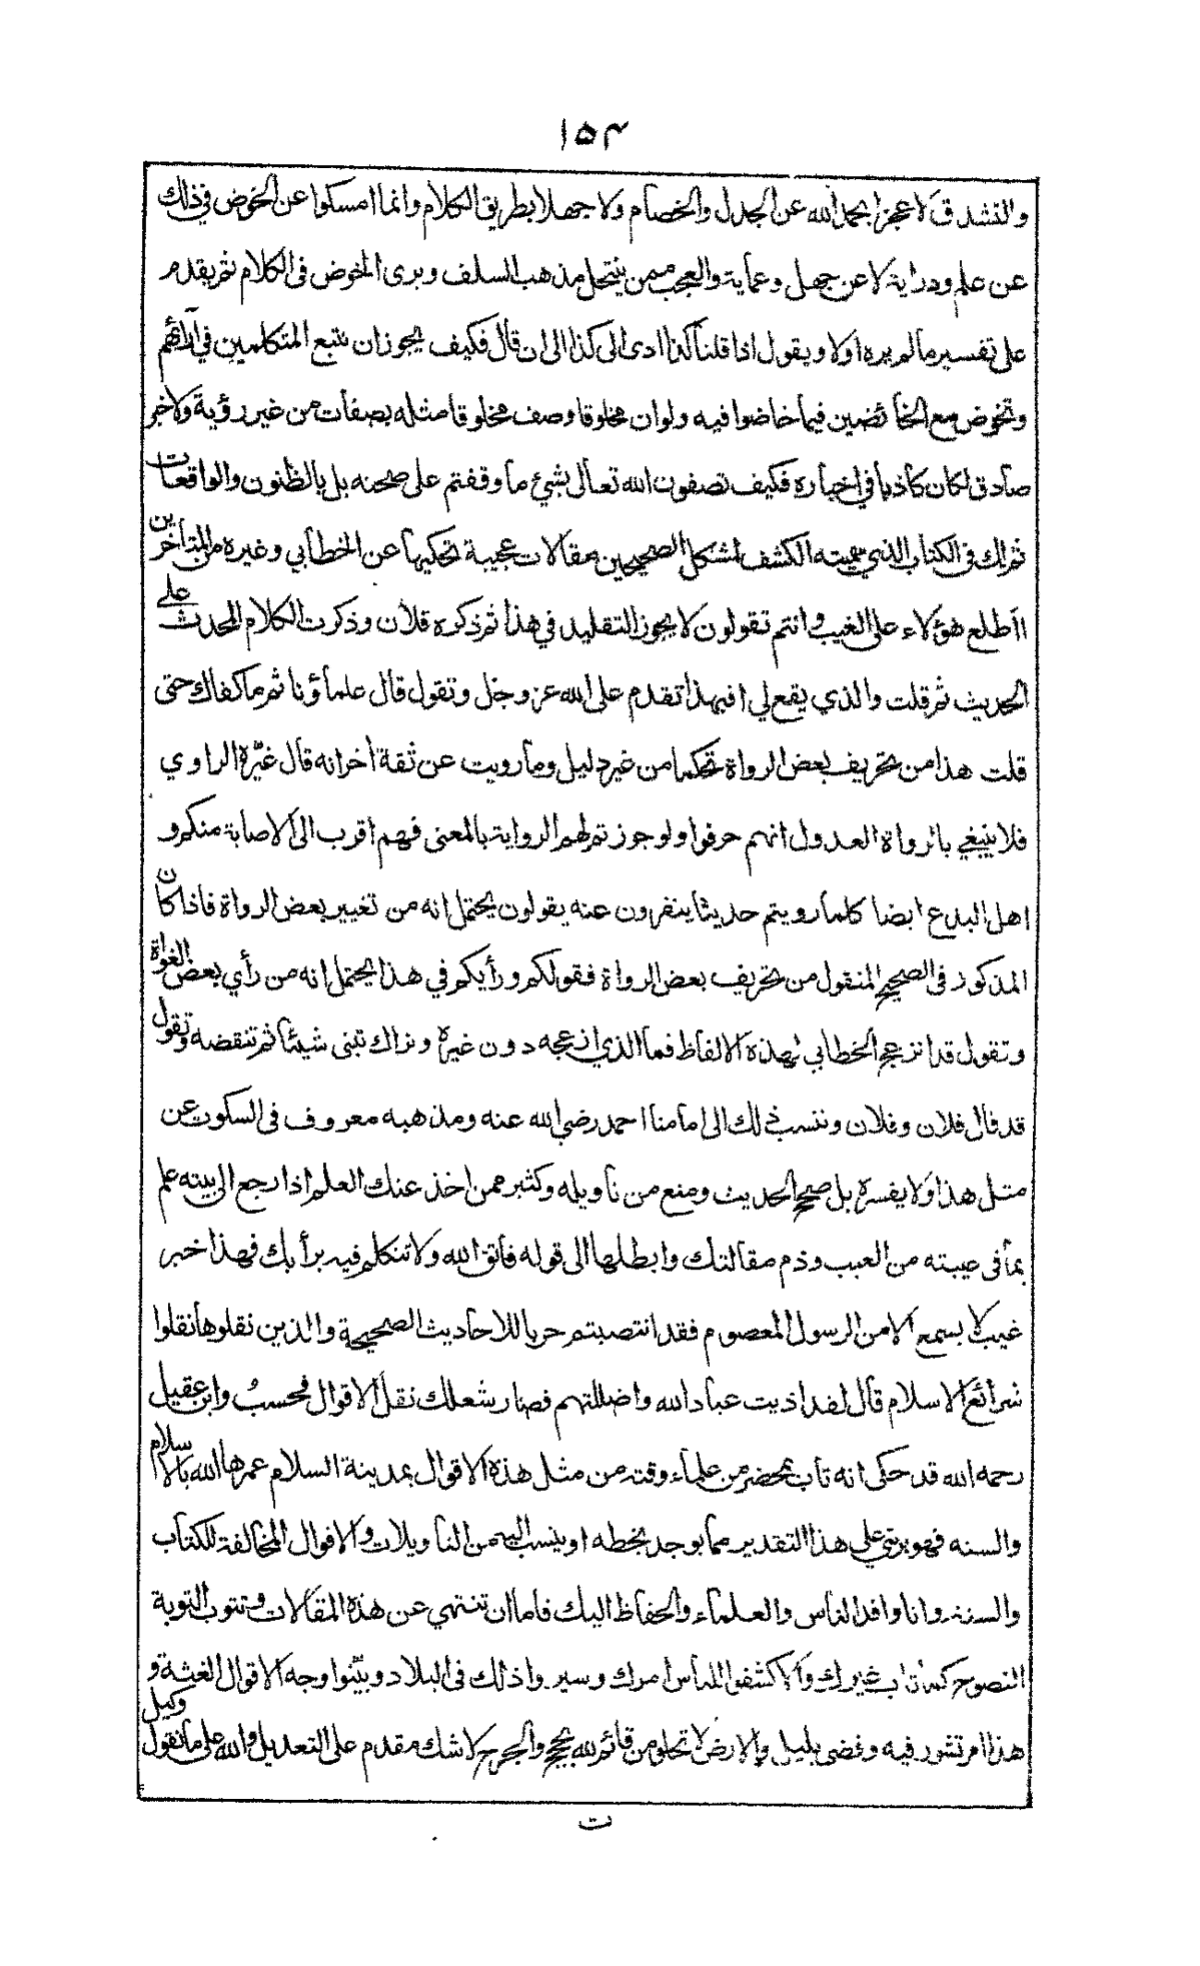 ١٥٣
والتشدق لا عجزا بحمد الله عن الجدل والخصام ولا جهلا بطريق الكلام وانما امسكوا عن الخوض في ذلك
عن علم ودراية لا عن جهل وعماية والعجب ممن ينتحل مذهب السلف ويرى الخوض فى الكلام ثم يقدم
على تفسير ما لم يره اولا ويقول اذا قلنا كذا ادى الى كذا الى ان قال فكيف يجوز ان نتبع المتكلمين في آرائهم
ونخوض مع الخائضين فيما خاضوا فيه ولوان مخلوقا وصف مخلوقا مثله بصفات من غير رؤية ولا خبر
صادق لكان كاذبا في اخباره فكيف تصفون الله تعالى بشيء ما وقفتم على صحته بل بالظنون والواقعات
ثم لك فى الكتاب الذي سميته الكشف لمشكل الصحيحين مقالات عجيبة تحكيها عن الخطابي وغيره من المتأخرين
أاطلع هؤلاء على الغيب وانتم تقولون لا يجوز التقليد في هذا ثم ذكره فلان وذكرت الكلام المحدث على
الحديث ثم قلت والذي يقع لي افبهذا تقدم على الله عز وجل وتقول قال علماؤنا ثم ما كفاك حتى
قلت هذا من تحريف بعض الرواة تحكما من غير دليل وما رويت عن ثقة اخر انه قال غيّره الراوي
فلا ينبغي بالرواة العدول انهم حرفوا ولو جوزتم لهم الرواية بالمعنى فهم اقرب الى الاصابة منكم و
اهل البدع ايضا كلما رويتم حديثا ينفرون عنه يقولون يحتمل انه من تغيير بعض الرواة فاذا كان
المذكور فى الصحيح المنقول من تحريف بعض الرواة فقولكم ورأيكم في هذا يحتمل انه من رأي بعض الغواة
وتقول قد انزعج الخطابي لهذه الالفاظ فما الذي ازعجه دون غيره ونراك تبنى شيئا ثم تنقضه وتقول
قد قال فلان وفلان وننسب ذلك الى امامنا احمد رضي الله عنه ومذهبه معروف فى السكوت عن
مثل هذا ولا يفسره بل صحح الحديث ومنع من تأويله وكثير ممن اخذ عنك العلم اذا رجع الى بيته علم
بما فى عيبته من العيب وذم مقالتك وابطلها الى قوله فاتق الله ولا تتكلم فيه برأيك فهذا خبر
غيب لا يسمع الا من الرسول المعصوم فقد انتصبتم حربا للاحاديث الصحيحة والذين نقلوها نقلوا
شرائع الاسلام قال لقد اذيت عباد الله واضللتهم فصار شغلك نقل الاقوال فحسب وابن عقيل
رحمه الله قد حكى انه تاب بمحضر من علماء وقته من مثل هذه الاقوال بمدينة السلام عمرها الله بالاسلام
والسنه فهو بريّ على هذا التقدير مما يوجد بخطه او ينسب اليه من التأويلات والاقوال المخالفة للكتاب
والسنة وانا وافد الناس والعلماء والحفاظ اليك فاما ان تنتهي عن هذه المقالات وتتوب التوبة
النصوح كما تاب غيرك والا كشفوا للناس امرك وسيروا ذلك فى البلاد وبيّنوا وجه الاقوال الغثة و
هذا امر تشور فيه وقضى بليل والارض لا تخلو من قائم لله بحجج والجرح لا شك مقدم على التعديل والله على ما نقول وكيل
ت